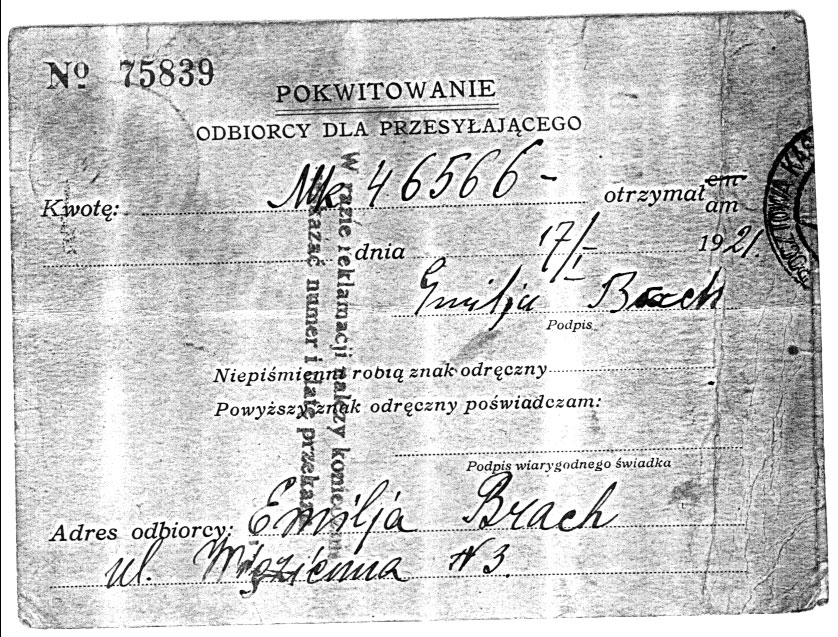 Nº 75839
POKWITOWANIE
ODBIORCY DLA PRZESYŁAJĄCEGO
Kwotę: Mk 46566- otrzymał em
am
dnia 17/I- 1921.
Emilja Brach
Podpis
Niepiśmienni robią znak odręczny
Powyższy znak odręczny poświadczam:
Podpis wiarygodnego świadka
Adres odbiorcy: Emilja Brach
ul. Więzienna N 3.
W razie reklamacji należy koniecznie
wskazać numer i datę przekazu